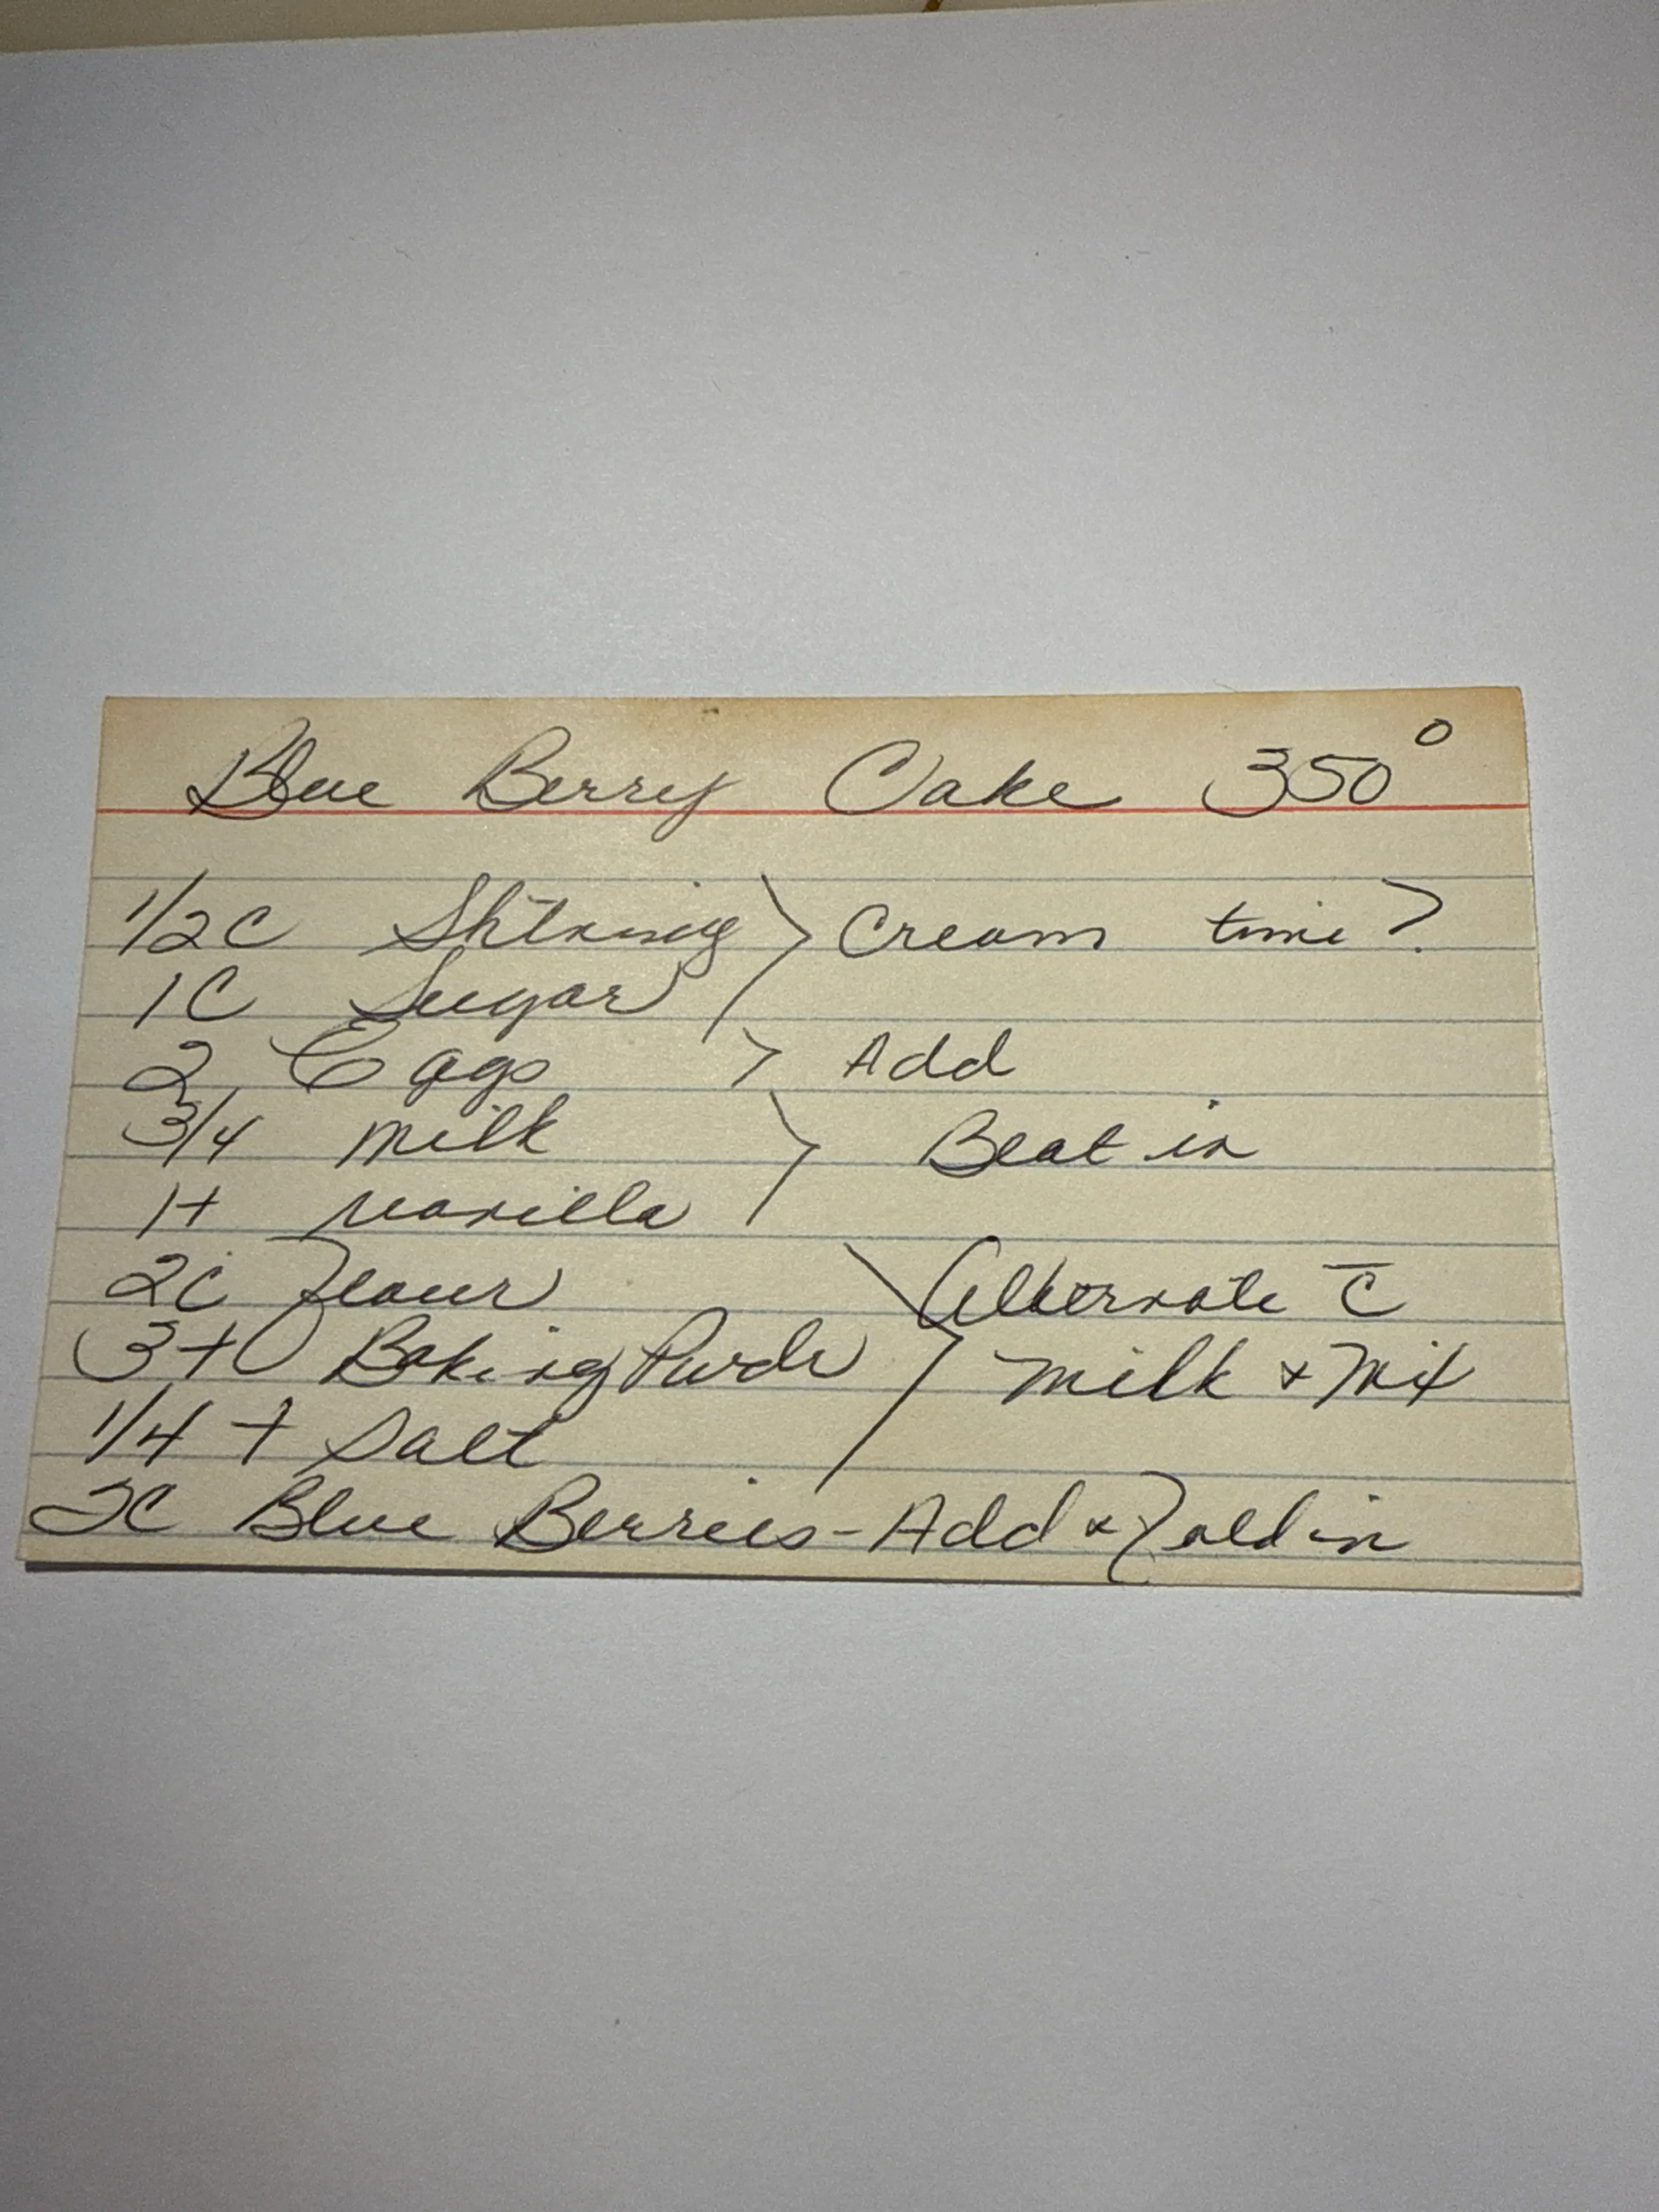 Blue Berry Cake 350°
1/2 C Shtning > Cream time?
1 C Sugar
2 Eggs > Add
3/4 Milk > Beat in
1 t vanilla
2 C Flour > Alternate c̄
3 t Baking Powdr milk & Mix
1/4 t Salt
2C Blue Berries - Add & Fold in